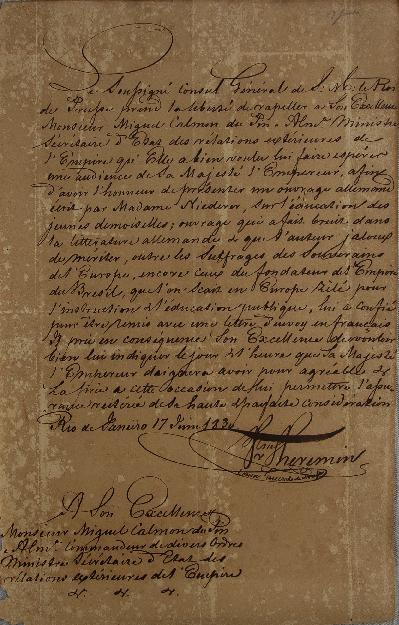 Le Soussigné Consul Général de S. M. le Roi
de Prusse prend la liberté de rappeller à Son Excellence
Monsieur Miguel Calmon du Pin e Almda Ministre
Secretaire d'Etat des rélations extérieures de
l'Empire qu'Elle a bien voulu lui faire espérer
une audience de Sa Majesté l'Empereur, afin
d'avoir l'honneur de présenter un ouvrage allemand
écrit par Madame Niederer, sur l'éducation des
jeunes demoiselles; ouvrage qui a fait bruit dans
la littérature allemande & que l'auteur jaloux
de mériter, outre les suffrages des Souverains
de l'Europe, encore ceux du fondateur de l'Empire
du Bresil, que l'on sait en Europe zélé pour
l'instruction & l'éducation publique, lui a confié
pour être remis avec une lettre d'envoy en français.
Il prie en conséquence Son Excellence de vouloir
bien lui indiquer le jour & l'heure que Sa Majesté
l'Empereur daignera avoir pour agréable &
La prie à cette occasion de lui permettre l'assu-
rance réitérée de sa haute & parfaite considération
Rio de Janeiro 17 Juin 1830
Theremin
A Son Excellence
Monsieur Miguel Calmon du Pin
e Almda Commandeur de divers Ordres
Ministre Sécrétaire d'Etat des
rélations extérieures de l'Empire
&. &. &.